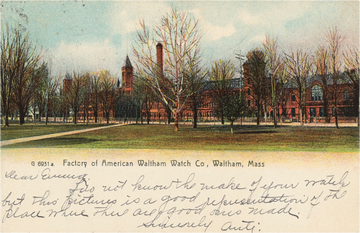 G 6951 a Factory of American Waltham Watch Co., Waltham, Mass
Dear Emma,
I do not know the make of your watch
but this picture is a good representation of the
place where they are good ones made.
Sincerely Auti.